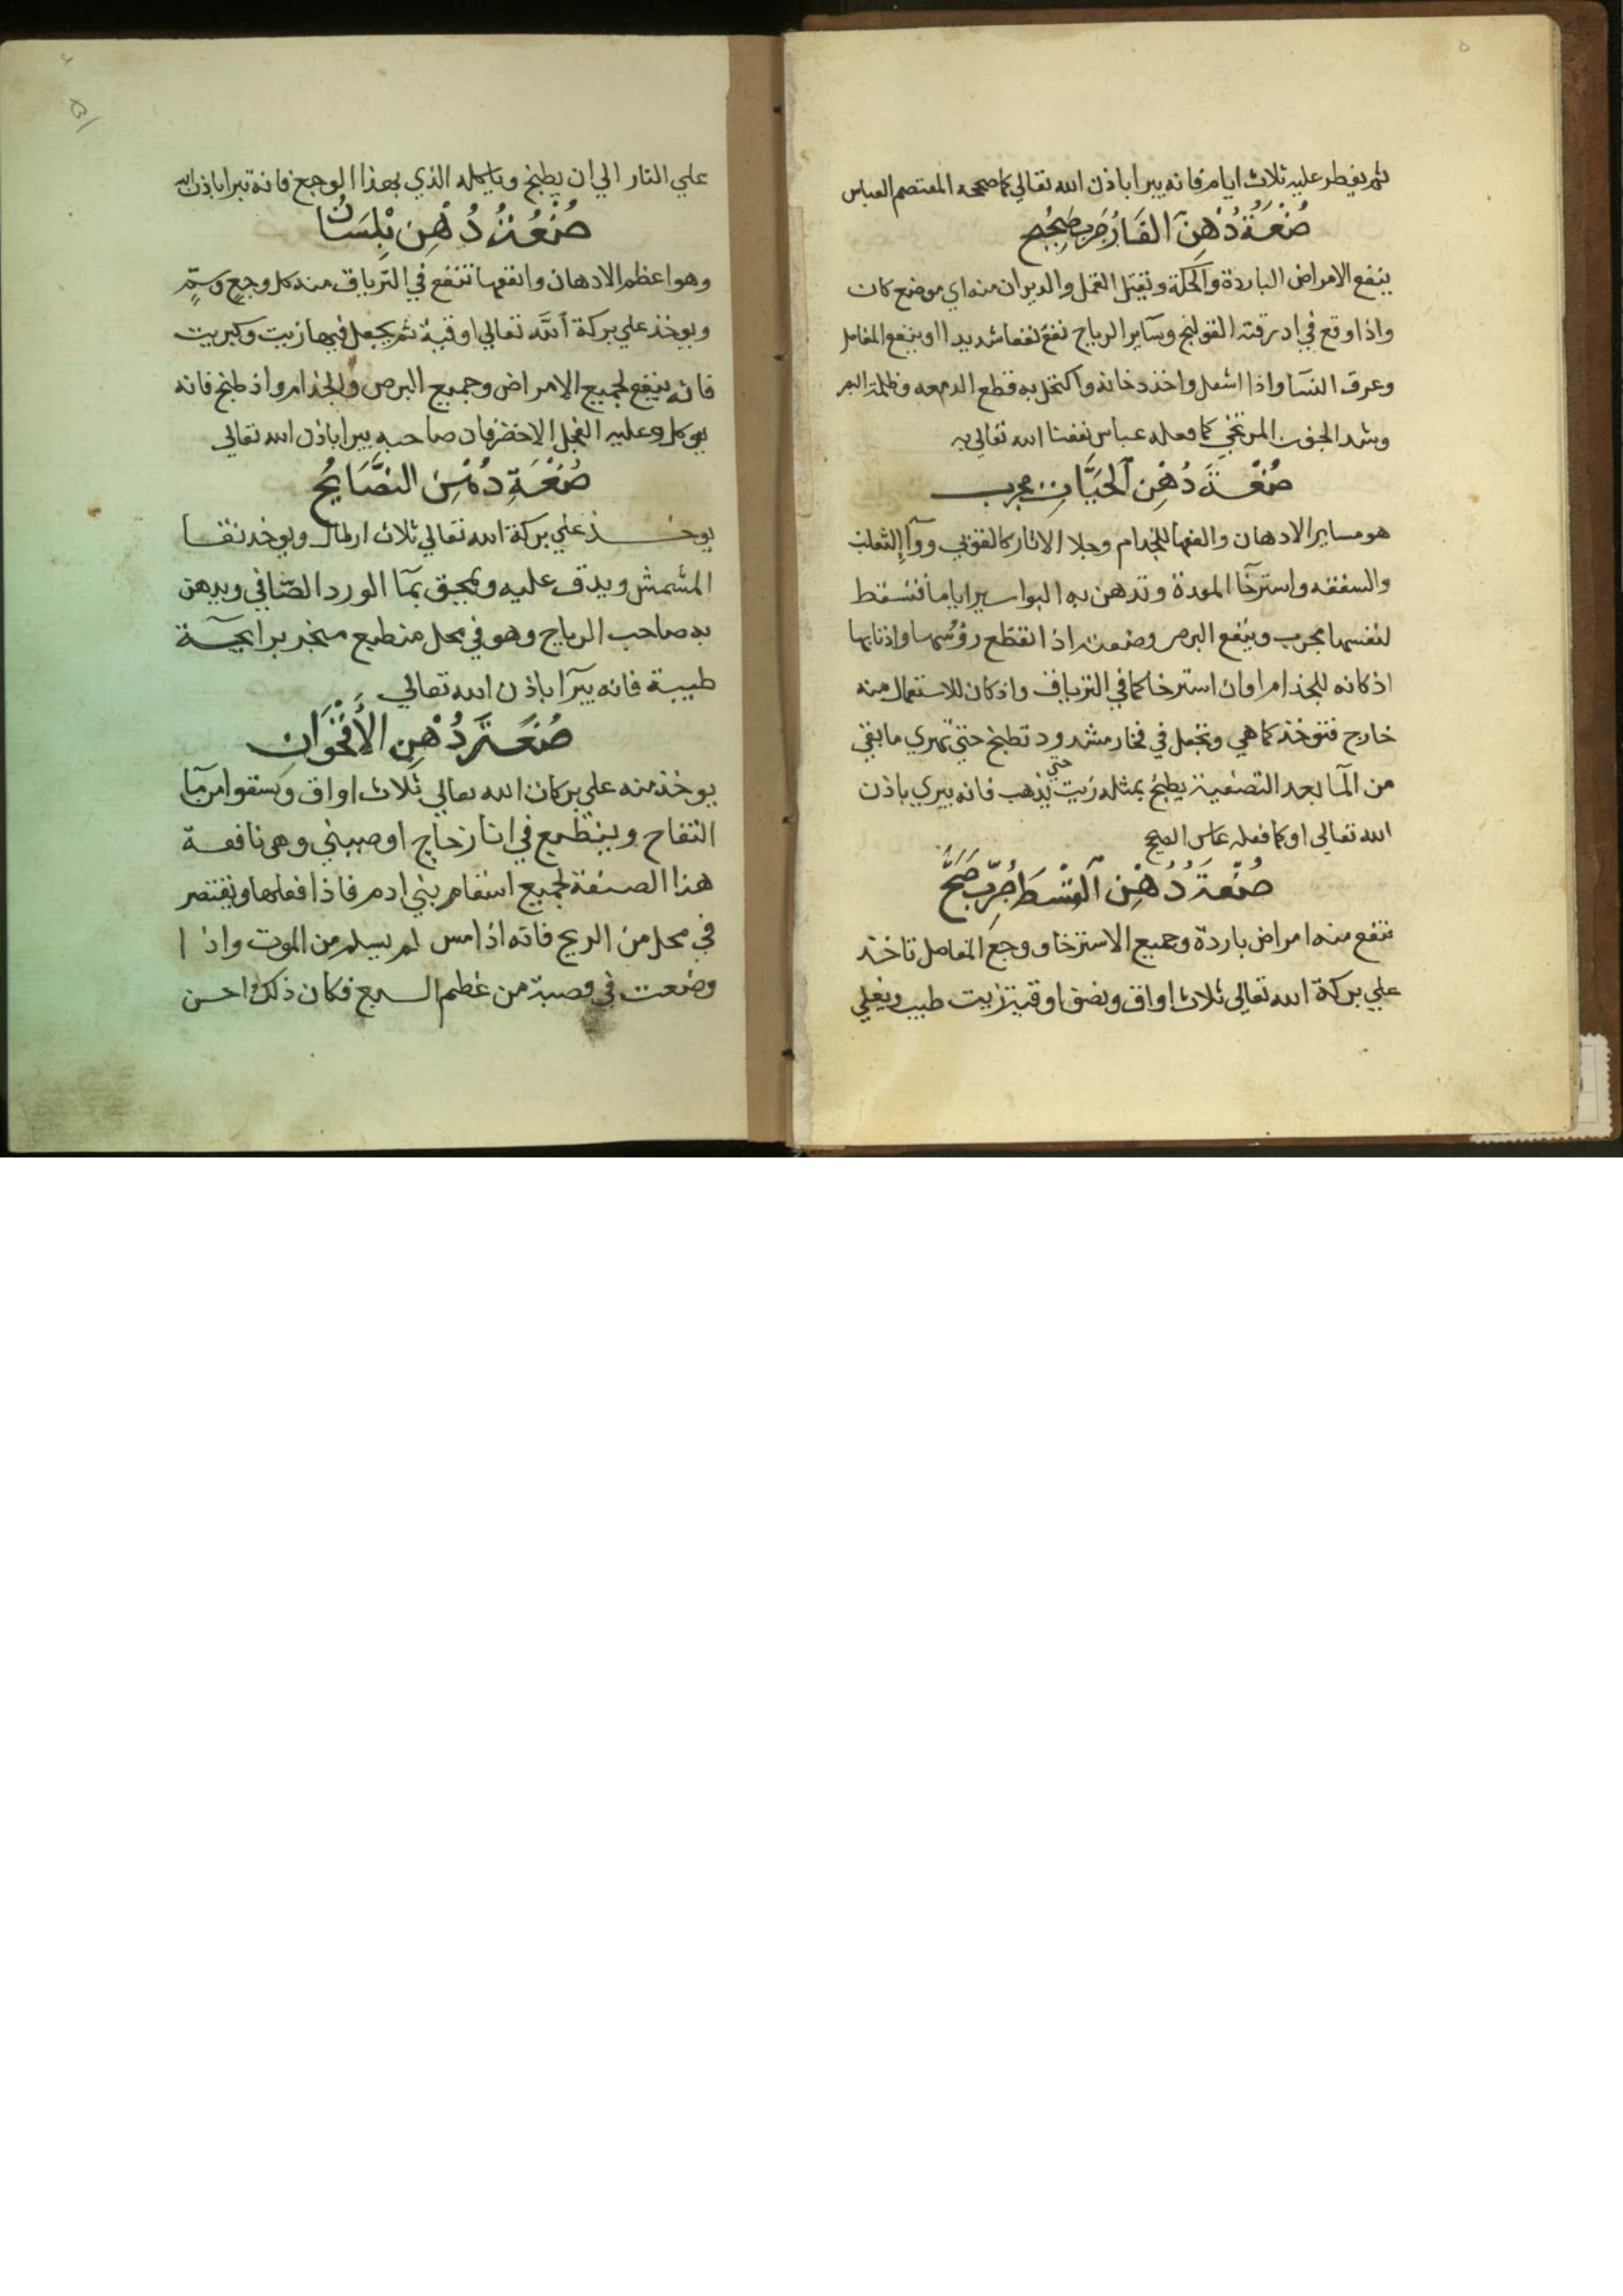 ثم يفطر عليه ثلاث ايام فانه يبرا باذن الله تعالي كما صححه المعتصم العباس
صُنْعَةُ دُهْنِ الفَار مجرب صحيح
ينفع الامراض الباردة والحكة وتقتل القمل والديدان منه اي موضع كان
واذا وقع في القولنج وساير الرياح نفع نفعا شديدا او ينفع المفاصل
وعرق النسا واذا اشعل واخذ دخانه واكتحل به قطع الدمعه وظلمة البصر
وشد الجفون المرتخي كما فعله عباس نفعنا الله تعالي به
صُنْعَةَ دُهْنِ اَلحَيَّاتِ مجرب
هو من ساير الادهان والنفعها للجذام وجلا الاثار كالقوبي وداآ الثعلب
والسعفه واسترخآ المعدة وتدهن به البواسير اياما فتسقط
لنفسها مجرب وينفع البرص وضعت اذا انقطع رؤسها واذنابها
اذ كانه للجذام او ان استرخا كما في الترياق واذ كان للاستعمال منه
خارج فتوخذ كما هي وتجعل في فخار مشدود تطبخ حتي تهري ما بقي
من المآ بعد التصفية يطبخ بمثله زيت حتي يذهب فانه يبري باذن
الله تعالي او كما فعله عباس الصحيح
صُنْعَةَ دُهْنِ القُسْطِ جُرِّبَ صَحَّ
تنفع منه امراض باردة وجميع الاسترخا ووجع المفاصل تاخذ
علي بركة الله تعالي ثلاث اواق ونصف اوقية زيت طيب ويغلي
علي النار الي ان يطبخ وياكله الذي بهذا الوجع فانه يبرا باذن الله
صُنْعَةُ دُهْنِ بَلِسَان
وهو اعظم الادهان وانفعها تنفع في الترياق منه كل وجع وسمّ
ويوخذ علي بركة الله تعالي اوقية ثم يجعل فيها زيت وكبريت
فانه ينفع لجميع الامراض وجميع البرص والجذام واذ طبخ فانه
يوكل وعليه الفجل الاخضر فان صاحبه يبرا باذن الله تعالي
صُنْعَةِ دُهْنِ النصَّايُح
يوخذ علي بركة الله تعالي ثلاث ارطال ويوخذ نقا
المشمش ويدق عليه ويعجن بمآ الورد الصّافي ويدهن
به صاحب الرياح وهو في محل منطبع مبخر برايحة
طيبة فانه يبرآ باذن الله تعالي
صُنْعَةَ دُهْنِ الأُقْحُوَانِ
يوخذ منه علي بركات الله تعالي ثلاث اواق ويسقوا من مآ
التفاح وينطبع في انا زجاج او صيني وهي نافعة
هذا الصنعة لجميع اسقام بني ادم فاذا فعلها ويقتصر
في محل من الريح فانه اذا مس لم يسلم من الموت واذا
وضعت في قصبة من عظم السبع فكان ذلك احسن